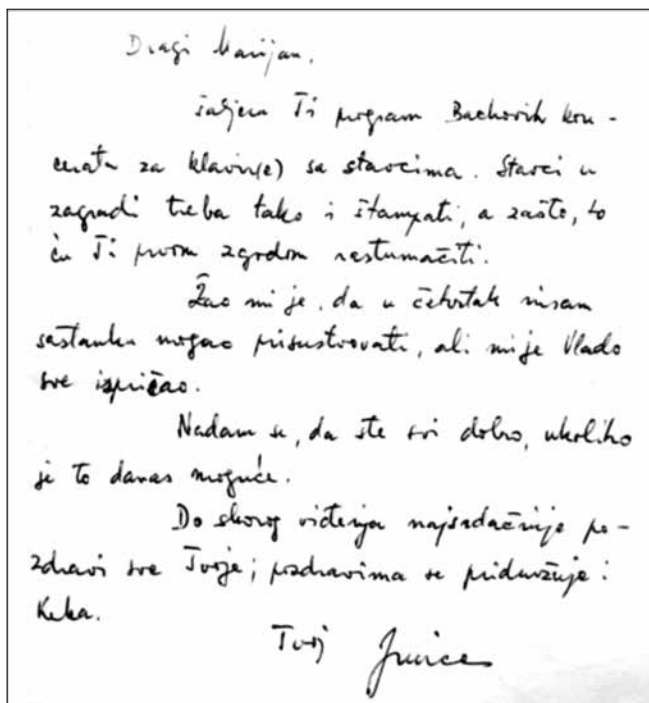 Dragi Marijan,
šaljem Ti program Bachovih kon-
cerata za klavir(e) sa stavcima. Stavci u
zagradi treba tako i štampati, a zašto, to
ću Ti prvom zgodom rastumačiti.
Žao mi je, da u četvrtak nisam
sastanku mogao prisustvovati, ali mi je Vlado
sve ispričao.
Nadam se, da ste svi dobro, ukoliko
je to danas moguće.
Do skorog viđenja najsrdačnije po-
zdravi sve Tvoje; pozdravima se pridružuje i
Keka.
Tvoj Jurica